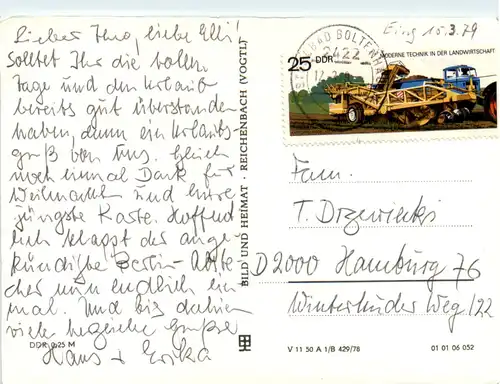 Lieber Ihno, liebe Elli!
Solltet Ihr die tollen
Tage und den Urlaub
bereits gut überstanden
haben, dann ein Urlaubs-
gruß von uns. Gleich
noch einmal Dank für
Weihnachten und Eure
jüngste Karte. Hoffent
lich klappt der ange-
kündigte Berlin-
cher nun endlich ein
mal. Und bis dahin
viele herzliche Grüße
Hans + Erika
DDR 0,25 M
BILD UND HEIMAT · REICHENBACH (VOGTL)
Eing 15.3.79
BAD BOLTENH
2422
25 DDR
MODERNE TECHNIK IN DER LANDWIRTSCHAFT
Fam.
T. Drzewiecki
D 2000 Hamburg 76
Winterhuder Weg 122
V 11 50 A 1/B 429/78
01 01 06 052